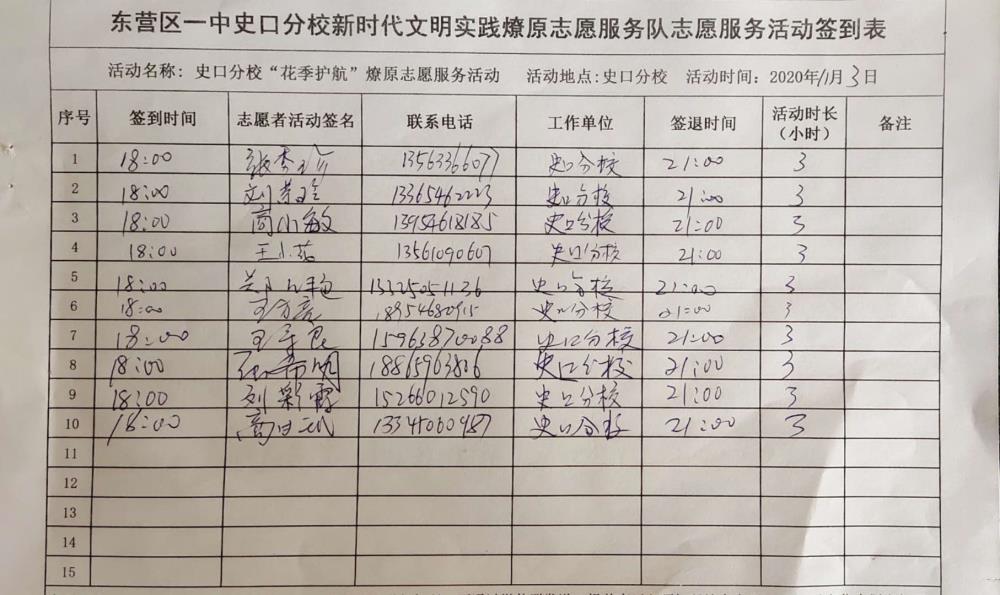 东营区一中史口分校新时代文明实践燎原志愿服务队志愿服务活动签到表
活动名称: 史口分校“花季护航”燎原志愿服务活动 活动地点:史口分校 活动时间: 2020年11月3日
序号 签到时间 志愿者活动签名 联系电话 工作单位 签退时间 活动时长（小时） 备注
1 18:00 史口分校 21:00 3
2 18:00 13365462223 史口分校 21:00 3
3 18:00 高小敏 13954618185 史口分校 21:00 3
4 18:00 王小茹 13561090607 史口分校 21:00 3
5 18:00 13325051136 史口分校 21:00 3
6 18:00 18954680915 史口分校 21:00 3
7 18:00 15963870088 史口分校 21:00 3
8 18:00 18865963806 史口分校 21:00 3
9 18:00 刘彩霞 15266012590 史口分校 21:00 3
10 18:00 史口分校 21:00 3
11
12
13
14
15